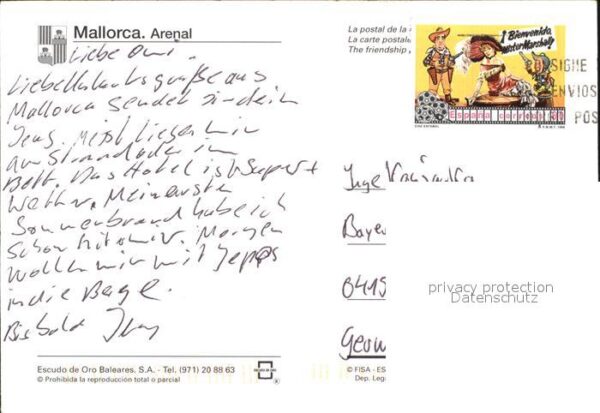 Mallorca. Arenal
Liebe Omi.
Liebe Urlaubsgrüße aus
Mallorca sendet dir dein
Jens. Meist liegen wir
am Strand oder im
Bett. Das Hotel ist Super +
Wetter. Meinen
Sonnenbrand habe ich
schon hinter mir. Morgen
wollen wir mit Jeeps
in die Berge.
Bis bald Jens
Escudo de Oro Baleares, S.A. - Tel. (971) 20 88 63
© Prohibida la reproducción total o parcial
La postal de la
La carte postale
The friendship
¡Bienvenido,
Mister Marshall!
España correos
CONSIGNE
ENVIOS
POS
Inge
Baye
0419
Germ
privacy protection
Datenschutz
© FISA - ES
Dep. Leg